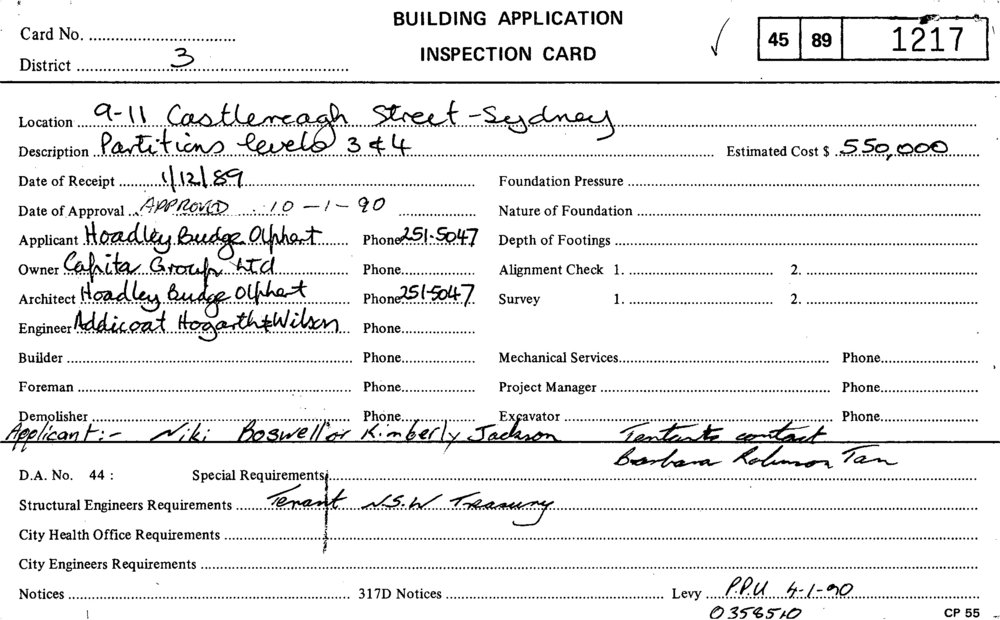 BUILDING APPLICATION
INSPECTION CARD
Card No.
District 3
45 89 1217
Location 9-11 Castlereagh Street - Sydney
Description Partitions levels 3 & 4 Estimated Cost $ 550,000
Date of Receipt 1/12/89 Foundation Pressure
Date of Approval APPROVED 10-1-90 Nature of Foundation
Applicant Hoadley Budge Olphert Phone 251-5047 Depth of Footings
Owner Capita Group LTd Phone Alignment Check 1. 2.
Architect Hoadley Budge Olphert Phone 251-5047 Survey 1. 2.
Engineer Addicoat Hogarth & Wilson Phone
Builder Phone Mechanical Services Phone
Foreman Phone Project Manager Phone
Demolisher Phone Excavator Phone
Applicant:- Niki Boswell or Kimberly Jackson Tentants contact
Barbara Robinson Tan
D.A. No. 44 : Special Requirements
Structural Engineers Requirements Tenant N.S.W Treasury
City Health Office Requirements
City Engineers Requirements
Notices 317D Notices Levy P.P.U 4-1-90
0358510 CP 55